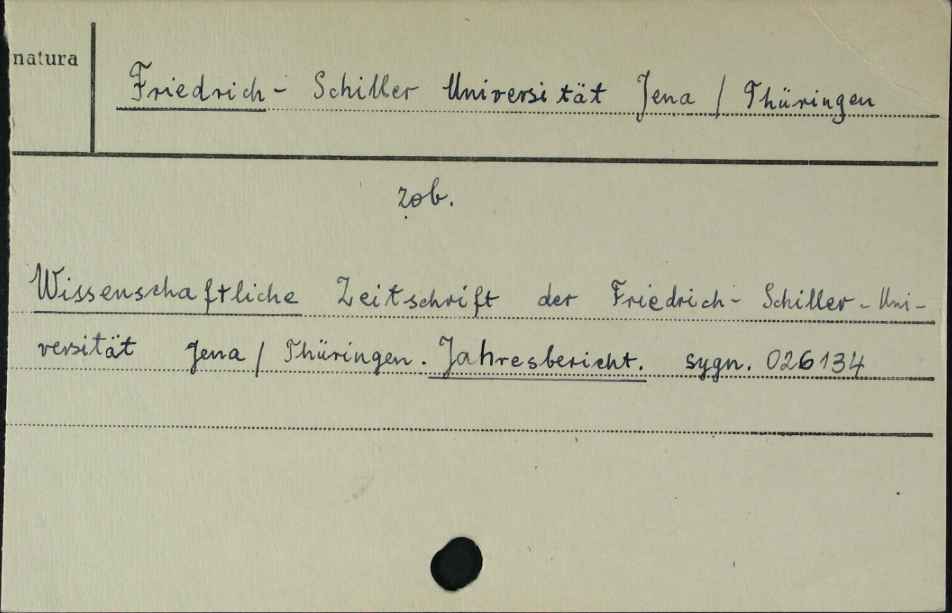 natura
Friedrich- Schiller Universität Jena / Thüringen
zob.
Wissenschaftliche Zeitschrift der Friedrich- Schiller-Uni-
versität Jena / Thüringen. Jahresbericht. sygn. 026134